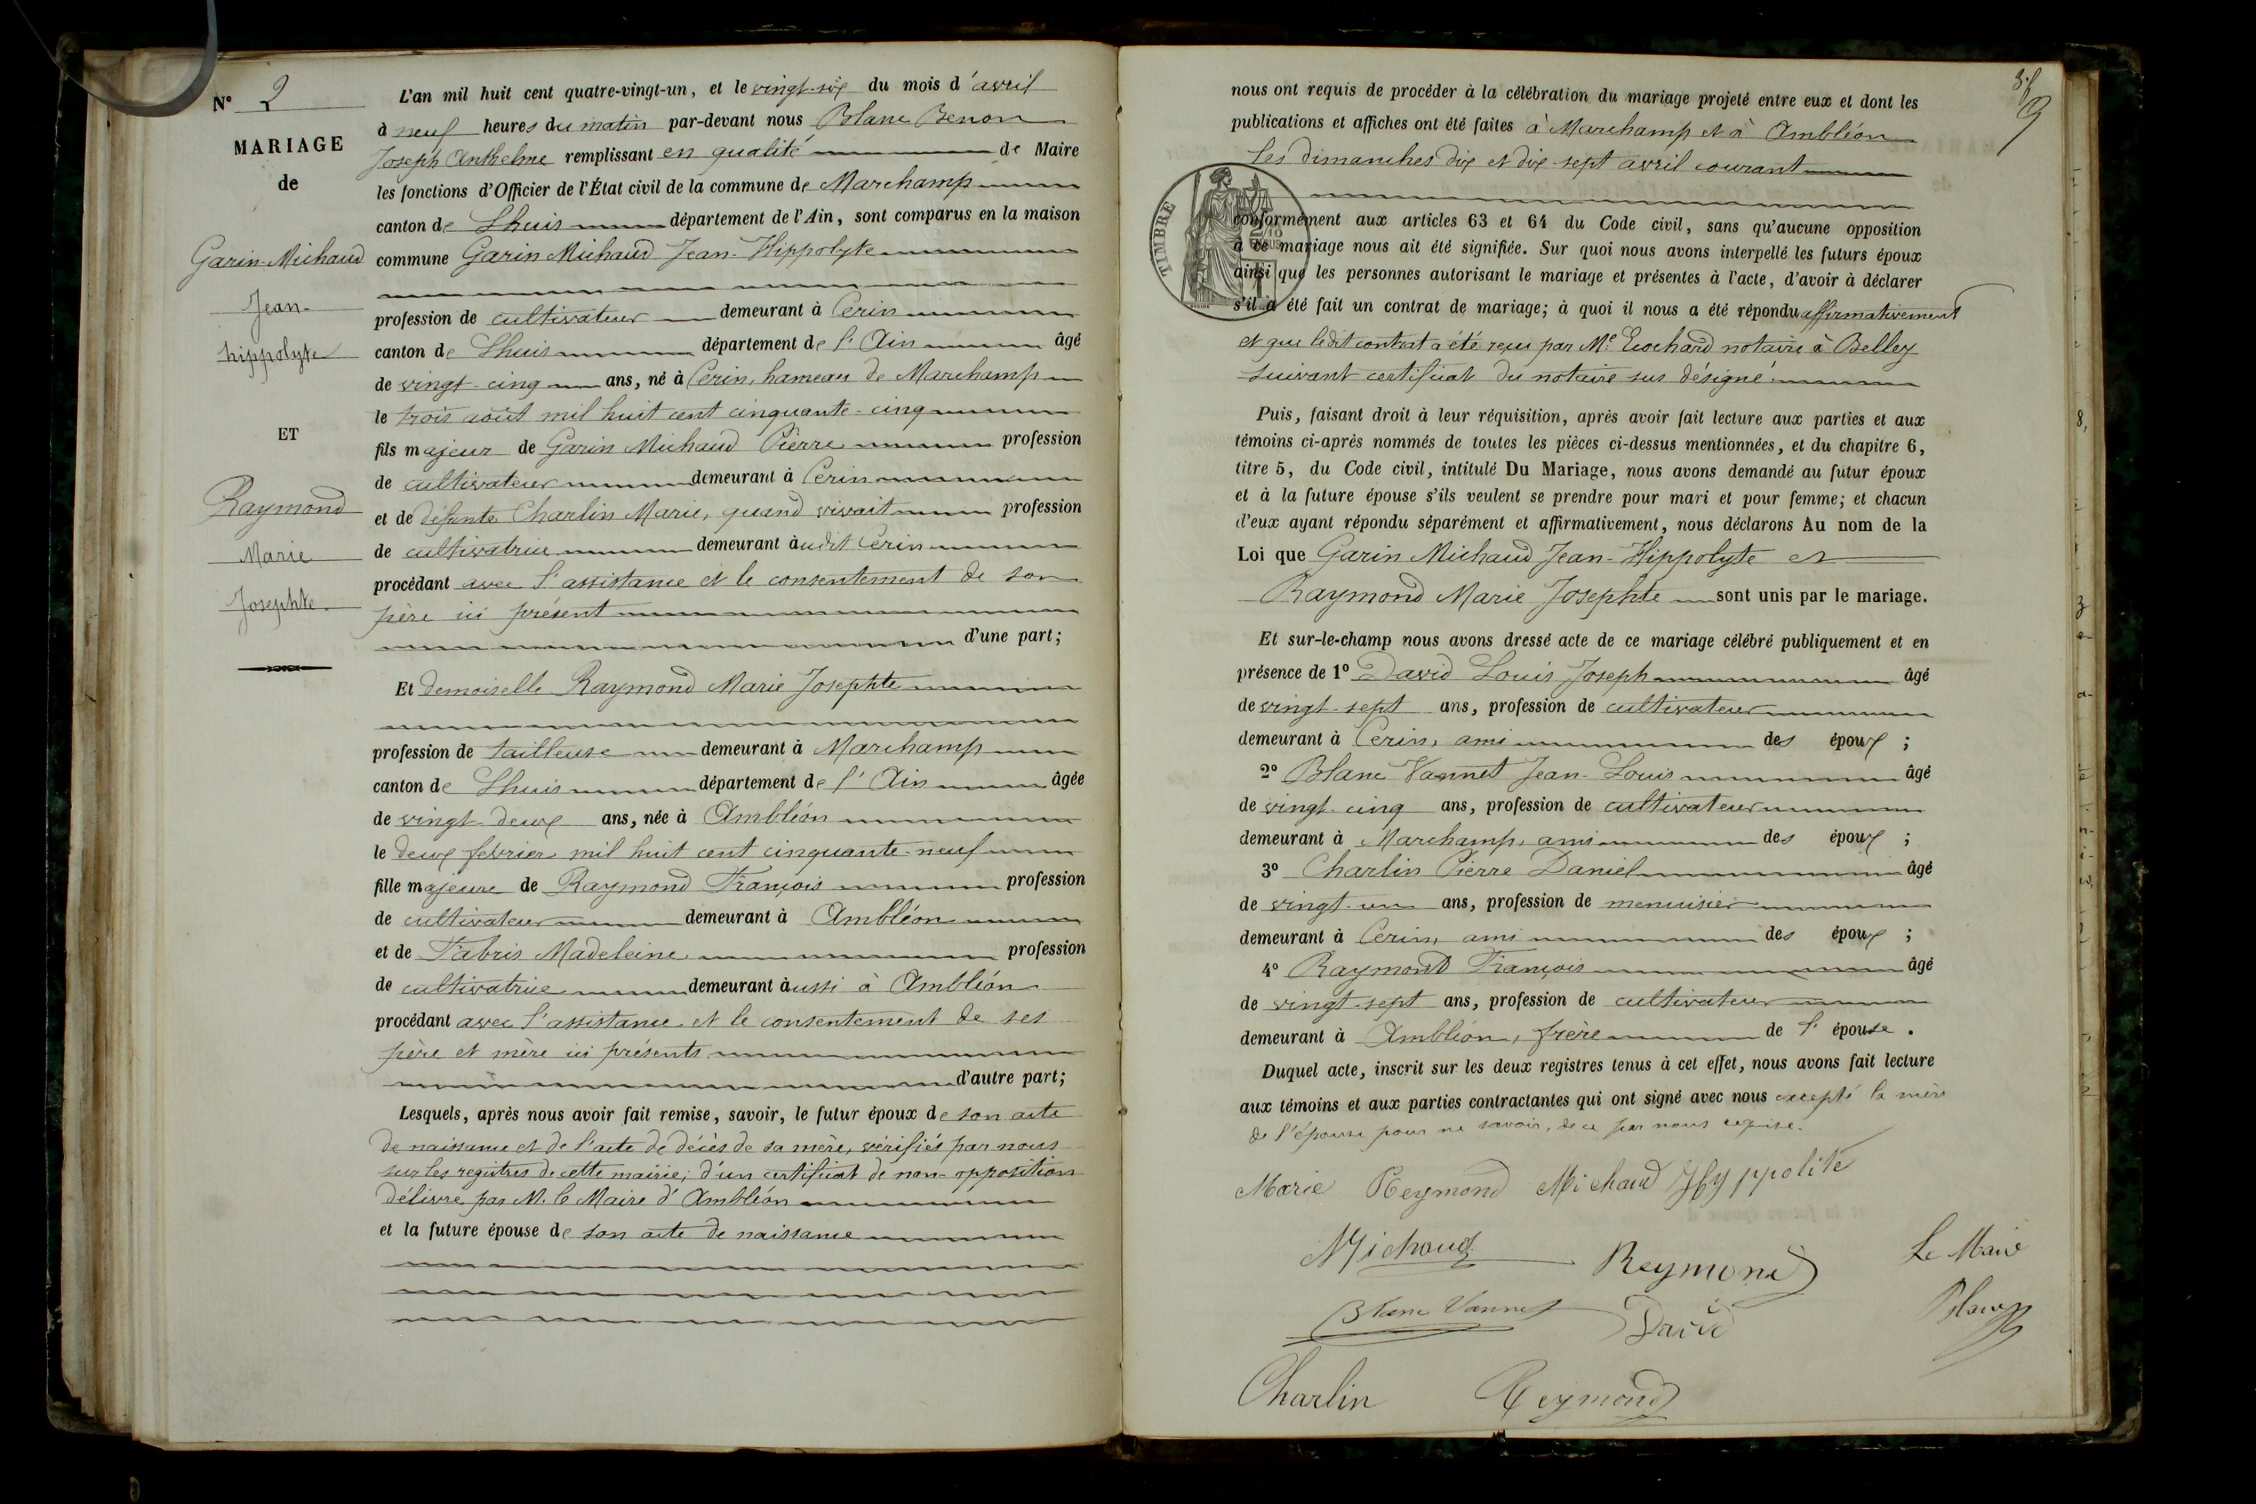 N° 2
MARIAGE
de
Garin-Michaud
Jean-
hippolyte
ET
Raymond
Marie
Josephte
L'an mil huit cent quatre-vingt-un, et le vingt-six du mois d'avril
à neuf heures du matin par-devant nous Blanc Benon
Joseph Anthelme remplissant en qualité de Maire
les fonctions d'Officier de l'État civil de la commune de Marchamp
canton de Lhuis département de l'Ain, sont comparus en la maison
commune Garin Michaud Jean-Hippolyte
profession de cultivateur demeurant à Cerin
canton de Lhuis département de l'Ain âgé
de vingt-cinq ans, né à Cerin, hameau de Marchamp
le trois août mil huit cent cinquante-cinq
fils majeur de Garin Michaud Pierre profession
de cultivateur demeurant à Cerin
et de défunte Charlin Marie, quand vivait profession
de cultivatrice demeurant audit Cerin
procédant avec l'assistance et le consentement de son
père ici présent
d'une part;
Et demoiselle Raymond Marie Josephte
profession de tailleuse demeurant à Marchamp
canton de Lhuis département de l'Ain âgée
de vingt-deux ans, née à Ambléon
le deux février mil huit cent cinquante-neuf
fille majeure de Raymond François profession
de cultivateur demeurant à Ambléon
et de Fabris Madeleine profession
de cultivatrice demeurant aussi à Ambléon
procédant avec l'assistance et le consentement de ses
père et mère ici présents
d'autre part;
Lesquels, après nous avoir fait remise, savoir, le futur époux de son acte
de naissance et de l'acte de décès de sa mère, vérifiés par nous
sur les registres de cette mairie; d'un certificat de non-opposition
délivré par M. le Maire d'Ambléon
et la future épouse de son acte de naissance
nous ont requis de procéder à la célébration du mariage projeté entre eux et dont les
publications et affiches ont été faites à Marchamp et à Ambléon
les dimanches dix et dix-sept avril courant
TIMBRE
conformément aux articles 63 et 64 du Code civil, sans qu'aucune opposition
à ce mariage nous ait été signifiée. Sur quoi nous avons interpellé les futurs époux
ainsi que les personnes autorisant le mariage et présentes à l'acte, d'avoir à déclarer
s'il a été fait un contrat de mariage; à quoi il nous a été répondu affirmativement
et que ledit contrat a été reçu par Me Ecochard notaire à Belley
suivant certificat du notaire sus désigné
Puis, faisant droit à leur réquisition, après avoir fait lecture aux parties et aux
témoins ci-après nommés de toutes les pièces ci-dessus mentionnées, et du chapitre 6,
titre 5, du Code civil, intitulé Du Mariage, nous avons demandé au futur époux
et à la future épouse s'ils veulent se prendre pour mari et pour femme; et chacun
d'eux ayant répondu séparément et affirmativement, nous déclarons Au nom de la
Loi que Garin Michaud Jean-Hippolyte et
Raymond Marie Josephte sont unis par le mariage.
Et sur-le-champ nous avons dressé acte de ce mariage célébré publiquement et en
présence de 1° David Louis Joseph âgé
de vingt-sept ans, profession de cultivateur
demeurant à Cerin, ami des époux ;
2° Blanc Vannet Jean-Louis âgé
de vingt-cinq ans, profession de cultivateur
demeurant à Marchamp, ami des époux ;
3° Charlin Pierre Daniel âgé
de vingt-un ans, profession de menuisier
demeurant à Cerin, ami des époux ;
4° Raymond François âgé
de vingt-sept ans, profession de cultivateur
demeurant à Ambléon, frère de l'épouse.
Duquel acte, inscrit sur les deux registres tenus à cet effet, nous avons fait lecture
aux témoins et aux parties contractantes qui ont signé avec nous excepté la mère
de l'épouse pour ne savoir, de ce par nous requise.
Marie Reymond Michaud Hyppolite
Michaud Reymond Le Maire
Blanc Vannet David Blanc
Charlin Reymond